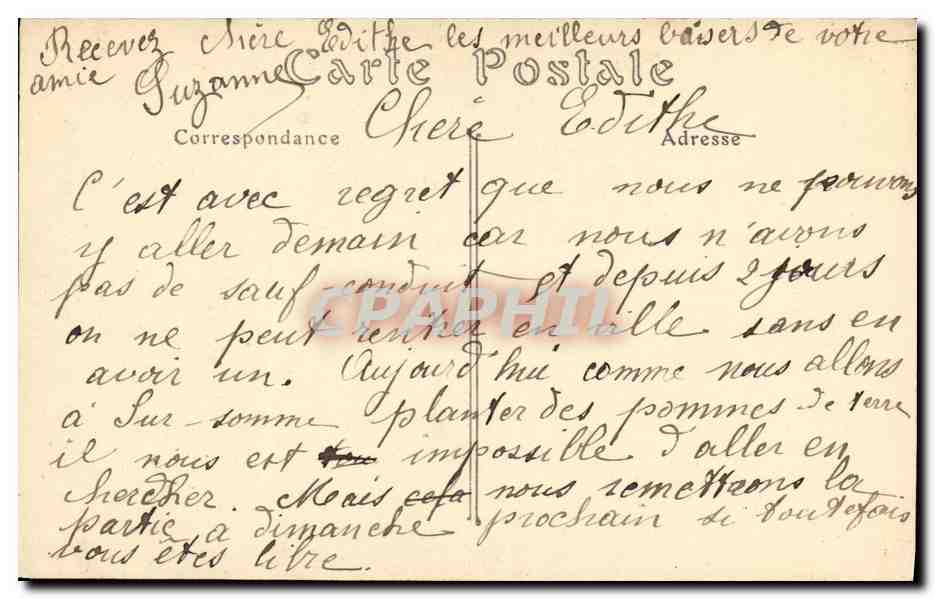 Recevez chère Edithe les meilleurs baisers de votre
amie Suzanne
Carte Postale
Correspondance
Adresse
Chère Edithe
C'est avec regret que nous ne pouvons
y aller demain car nous n'avons
pas de sauf-conduit et depuis 2 jours
on ne peut rentrer en ville sans en
avoir un. Aujourd'hui comme nous allons
à Sur-somme planter des pommes de terre
il nous est impossible d'aller en
chercher. Mais nous remettrons la
partie a dimanche prochain si toutefois
vous êtes libre.
CPAPHIL